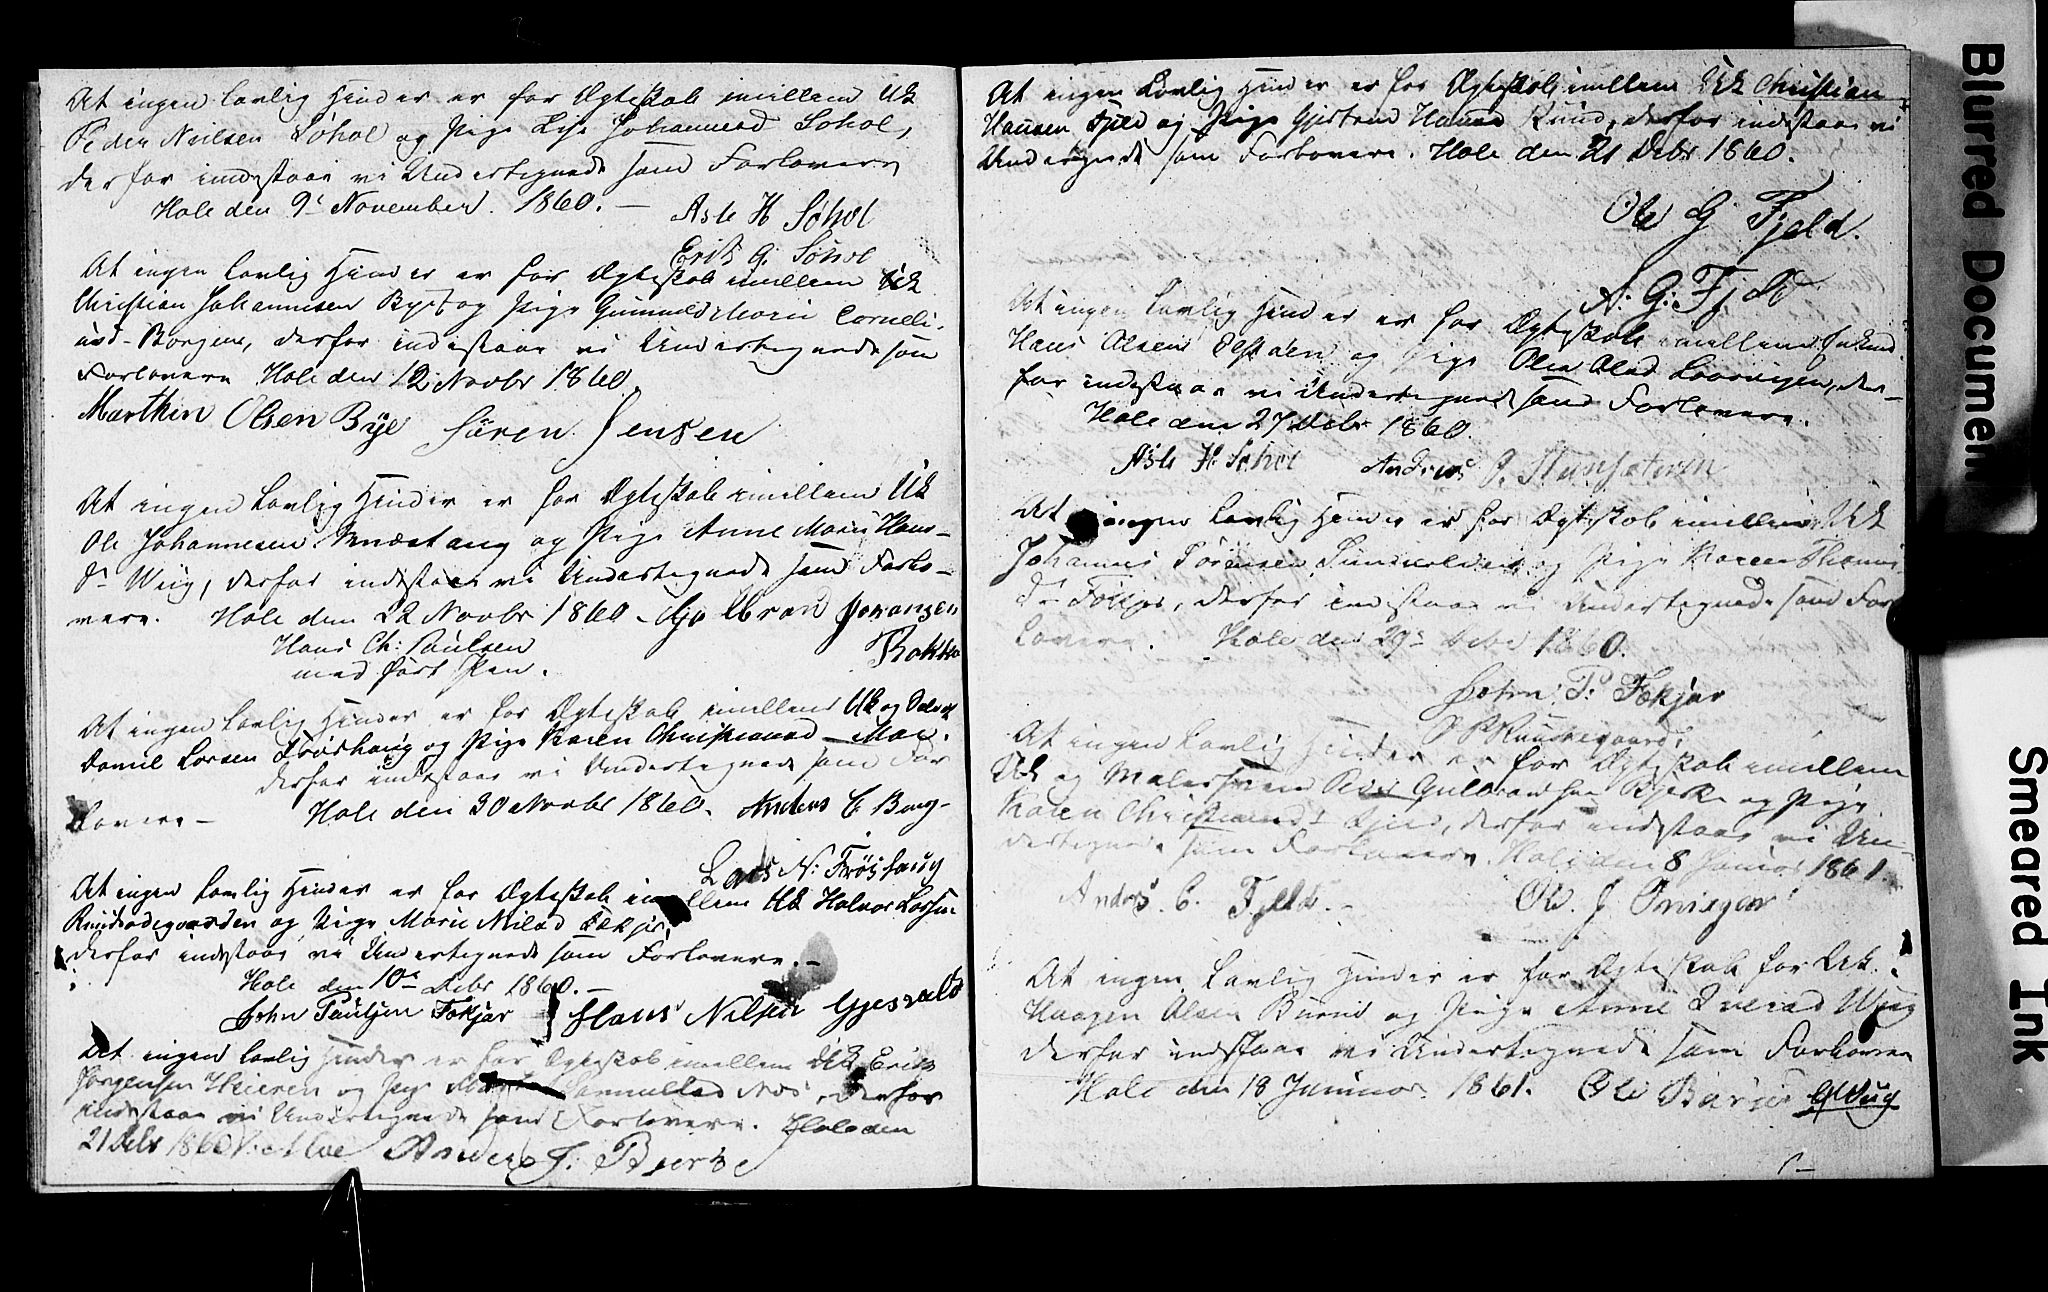 At ingen lovlig Hinder er for Ægteskab imellem Uk
Peder Nielsen Søhol og Pige Lise Johannesd Søhol,
derfor indestaar vi Undertegnede som Forlovere
Hole den 9de November 1860. — Asle H Søhol
Erik G. Søhol
At ingen lovlig Hinder er for Ægteskab imellem Uk
Christian Johannesen Bye og Pige Gunnild Marie Corneli-
usd. Borgen, derfor indestaar vi Undertegnede som
Forlovere Hole den 12 Novbr 1860.
Marthin Olsen Bye Søren Jensen
At ingen lovlig Hinder er for Ægteskab imellem Uk
Ole Johannesen og Pige Anne Marie Hans-
dr Wiig, derfor indestaar vi Undertegnede som Forlo-
vere. Hole den 22 Novbr 1860
Hans Ch: Paulsen
med ført Pen.
At ingen lovlig Hinder er for Ægteskab imellem Uk og
Daniel Larsen Frøshaug og Pige Karen Christiansd Moe.
derfor indestaar vi Undertegnede som For
lovere — Hole den 30 Novbr 1860. Anders C Borg-
Lars N: Frøshaug
At ingen lovlig Hinder er for Ægteskab imellem Uk Halvor Larsen
og Pige Marie Nilsd Fækjær,
derfor indestaar vi Undertegnede som Forlovere. —
Hole den 10de Debr 1860. —
John Paulsen Fækjær Hans Nilsen Gjesvald
At ingen lovlig Hinder er for Ægteskab imellem Uk Erik
Jørgensen og Pige Samuelsd Næs, derfor
indestaar vi Undertegnede som Forlovere. Hole den
21 Debr 1860 Moe Anders J: Bjerke
At ingen Lovlig Hinder er for Ægteskab imellem Uk Christian
Hansen Fjeld og Pige Gjertrud Hansd Rund, derfor indestaar vi
Undertegnede som Forlovere. Hole den 21 Debr 1860.
Ole G Fjeld.
A. G: Fjeld
At ingen lovlig Hinder er for Ægteskab imellem Enkem.
Hans Olsen og Pige Olea Olsd der-
for indestaar vi Undertegnede som Forlovere.
Hole den 27 Debr 1860.
Asle H. Søhol Andreas
At ingen lovlig Hinder er for Ægteskab imellem Uk
Johannes Sørensen Sundvolden og Pige Karen Thomas-
dr Fækjær, derfor indestaar vi Undertegnede som For
lovere. Hole den 29de Debr 1860.
John: P: Fækjær
At ingen lovlig Hinder er for Ægteskab imellem
Uk og Malersvend Peder Gulbrandsen Bjerke og Pige
Karen Christiansd Fjeld, derfor indestaar vi Un-
dertegnede som Forlovere. Hole den 8 Januar 1861.
Anders. C. Fjeld. — Ole. J
At ingen lovlig Hinder er for Ægteskab for Uk.
Haagen Olsen Burud og Pige Anne Iversd Wiig
derfor indestaar vi Undertegnede som Forlovere
Hole den 18 Januar 1861. Ole
Blurred Document
Smeared Ink